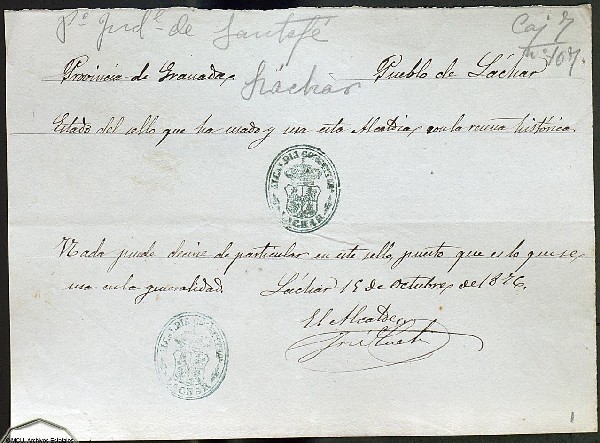 Po Judl de Santafé
Caj 7
No 107.
Provincia de Granada, Pueblo de Láchar
Láchar
Estado del sello que ha usado y usa esta Alcaldía, con la reseña histórica.
ALCALDIA CONSTITUCIONAL
LACHAR
Nada puede decirse de particular en este sello, puesto que es lo que se
usa en la generalidad. Láchar 15 de Octubre de 1876.
El Alcalde
José
LACHAR
1
© MCU. Archivos Estatales